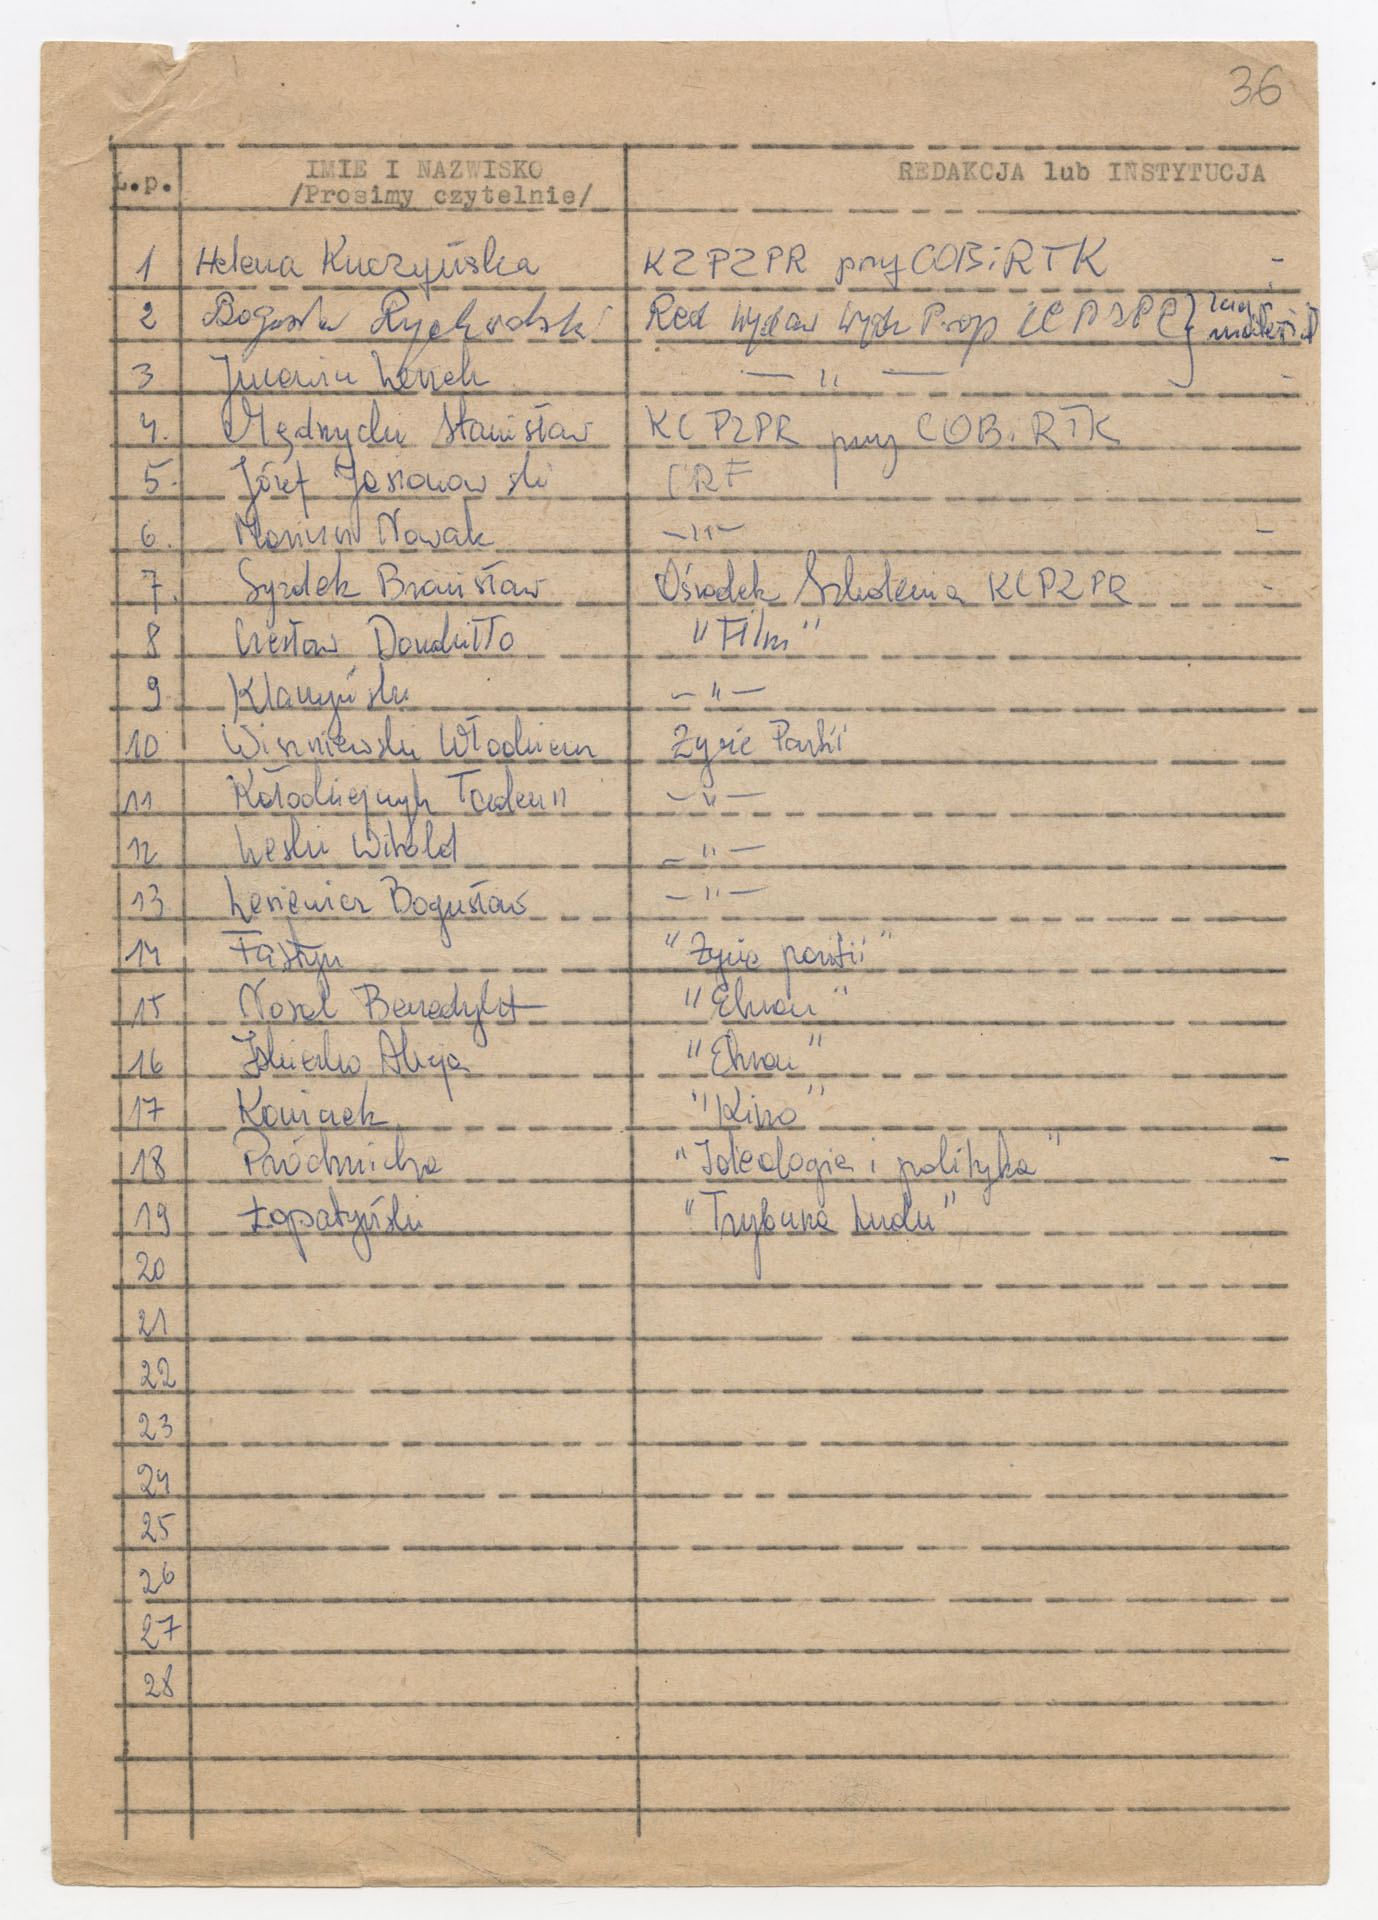 36
L.p. IMIE I NAZWISKO REDAKCJA lub INSTYTUCJA
/Prosimy czytelnie/
1 Helena Kuczyńska KZPZPR przy COBiRTK -
2 Red Wydaw Wydz Prop KC PZPR }
3 Leszek — " — -
4. Mędrzycki Stanisław KC PZPR przy COBiRTK
5. Józef Jasionowski CRF
6. Nowak — " — -
7. Syrdek Bronisław Ośrodek Szkolenia KCPZPR -
8 Czesław Dondziłło "Film"
9 — " —
10 Wiszniewski Włodzimierz Życie Partii
11 Kołodziejczyk Tadeusz — " —
12 Leski Witold — " —
13 Lesiewicz Bogusław — " —
14 Fastyn "Życie partii"
15 Nosal Benedykt "Ekran"
16 Alicja "Ekran"
17 Koniczek "Kino"
18 Próchnicka "Ideologia i polityka" -
19 Łopatyński "Trybuna Ludu"
20
21
22
23
24
25
26
27
28